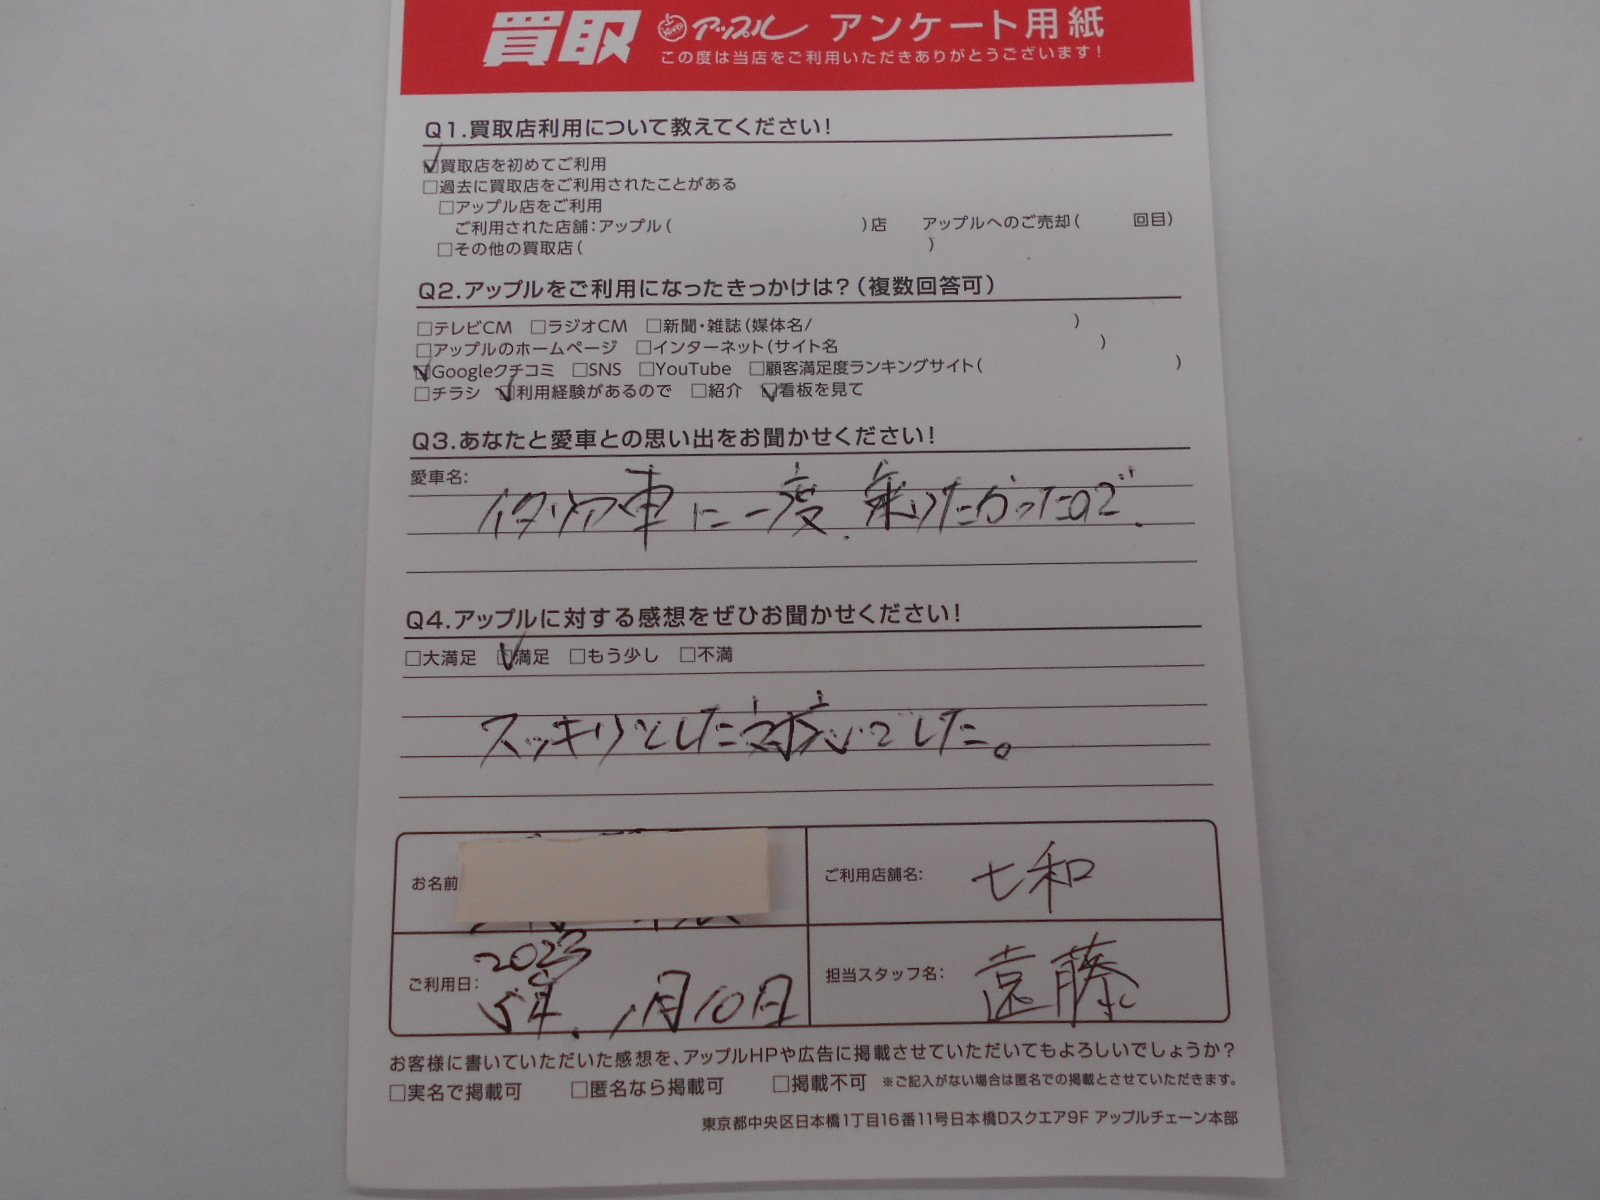 買取 アップル アンケート用紙
この度は当店をご利用いただきありがとうございます!
Q1.買取店利用について教えてください!
☑買取店を初めてご利用
□過去に買取店をご利用されたことがある
□アップル店をご利用
ご利用された店舗:アップル( )店 アップルへのご売却( 回目)
□その他の買取店( )
Q2.アップルをご利用になったきっかけは?(複数回答可)
□テレビCM □ラジオCM □新聞・雑誌(媒体名/ )
□アップルのホームページ □インターネット(サイト名 )
☑Googleクチコミ □SNS □YouTube □顧客満足度ランキングサイト( )
□チラシ ☑利用経験があるので □紹介 ☑看板を見て
Q3.あなたと愛車との思い出をお聞かせください!
愛車名:
イタリア車に一度、乗りたかったので、
Q4.アップルに対する感想をぜひお聞かせください!
□大満足 ☑満足 □もう少し □不満
スッキリとした対応でした。
お名前
ご利用店舗名: 七和
ご利用日: 2023
5年、1月10日
担当スタッフ名: 遠藤
お客様に書いていただいた感想を、アップルHPや広告に掲載させていただいてもよろしいでしょうか?
□実名で掲載可 □匿名なら掲載可 □掲載不可 ※ご記入がない場合は匿名での掲載とさせていただきます。
東京都中央区日本橋1丁目16番11号日本橋Dスクエア9F アップルチェーン本部